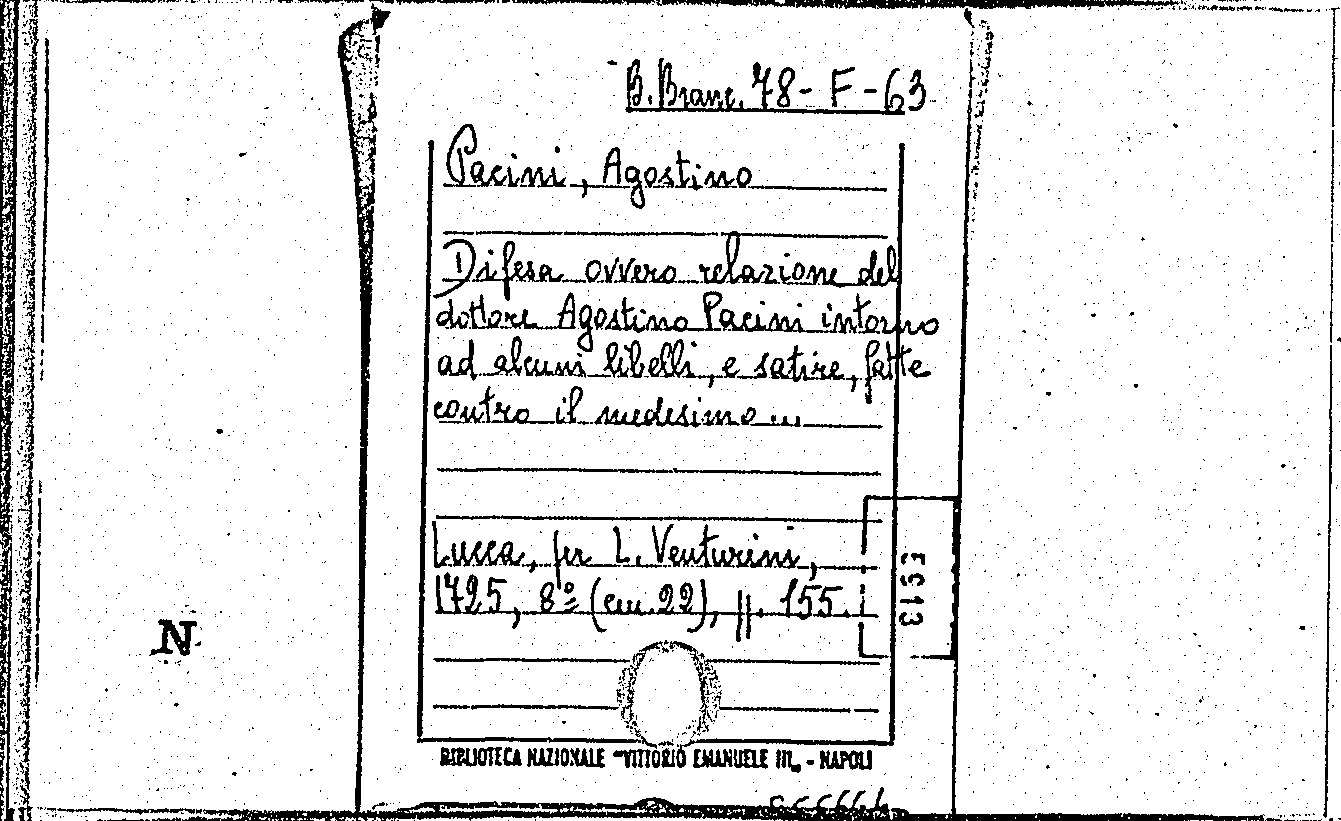 B. Branc. 78 - F - 63
Pacini, Agostino
Difesa ovvero relazione del
dottore Agostino Pacini intorno
ad alcuni libelli, e satire, fatte
contro il medesimo...
Lucca, per L. Venturini,
1725, 8º (cm. 22), pp. 155.
N
BIBLIOTECA NAZIONALE "VITTORIO EMANUELE III" - NAPOLI